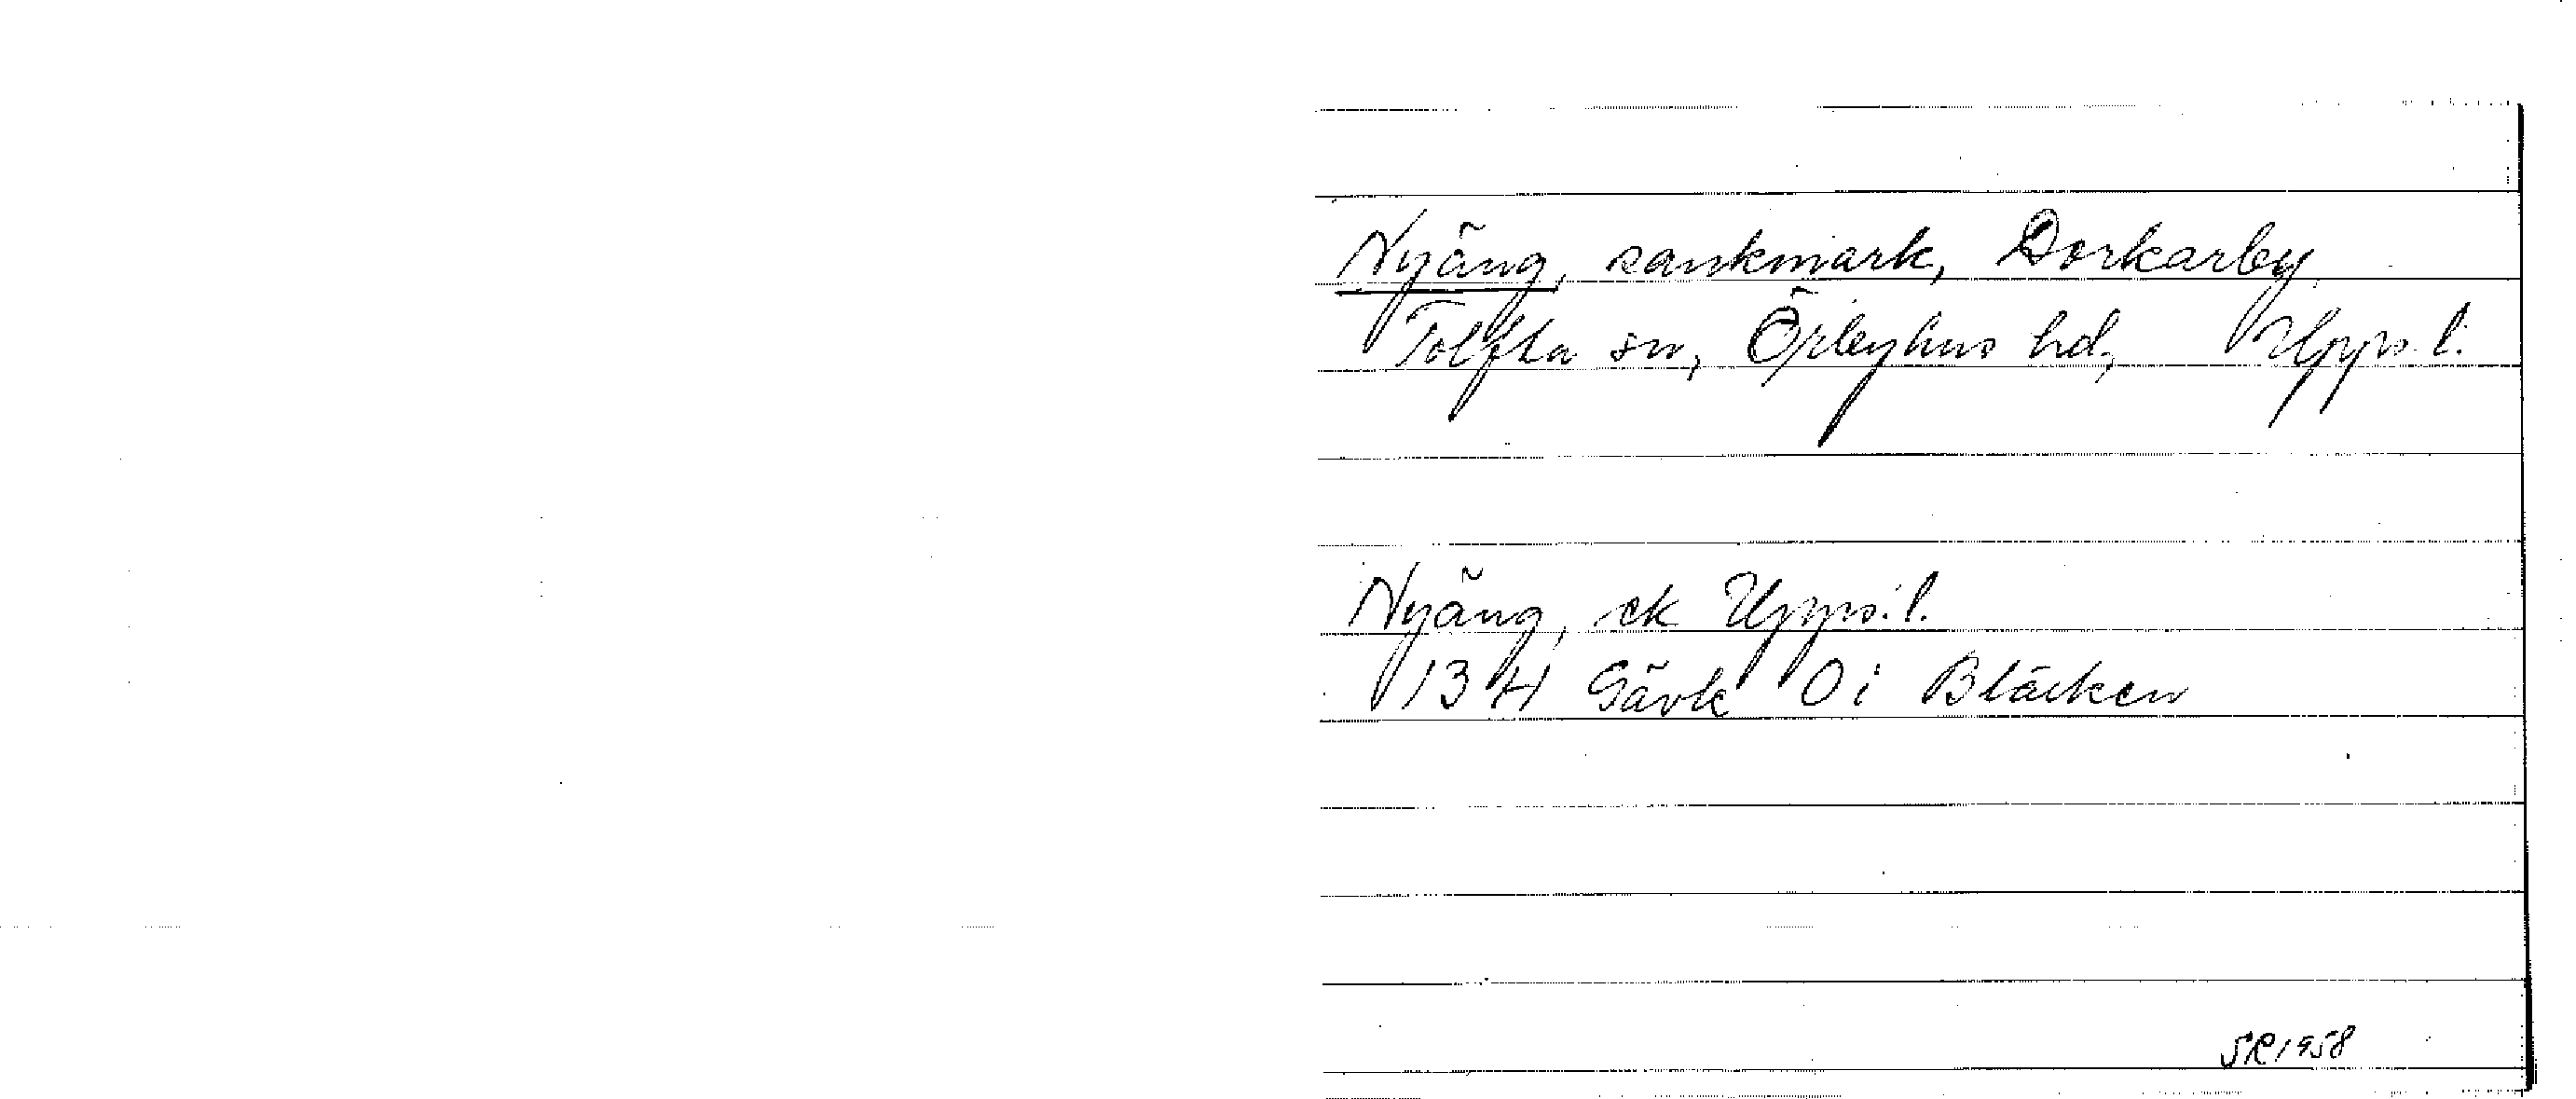 Nyäng, sankmark, Dorkarby
Tolfta sn, Örbyhus hd, Upps. l.
Nyäng, ek Upps. l.
13 H Gävle Öi Bläcken
SR 1958